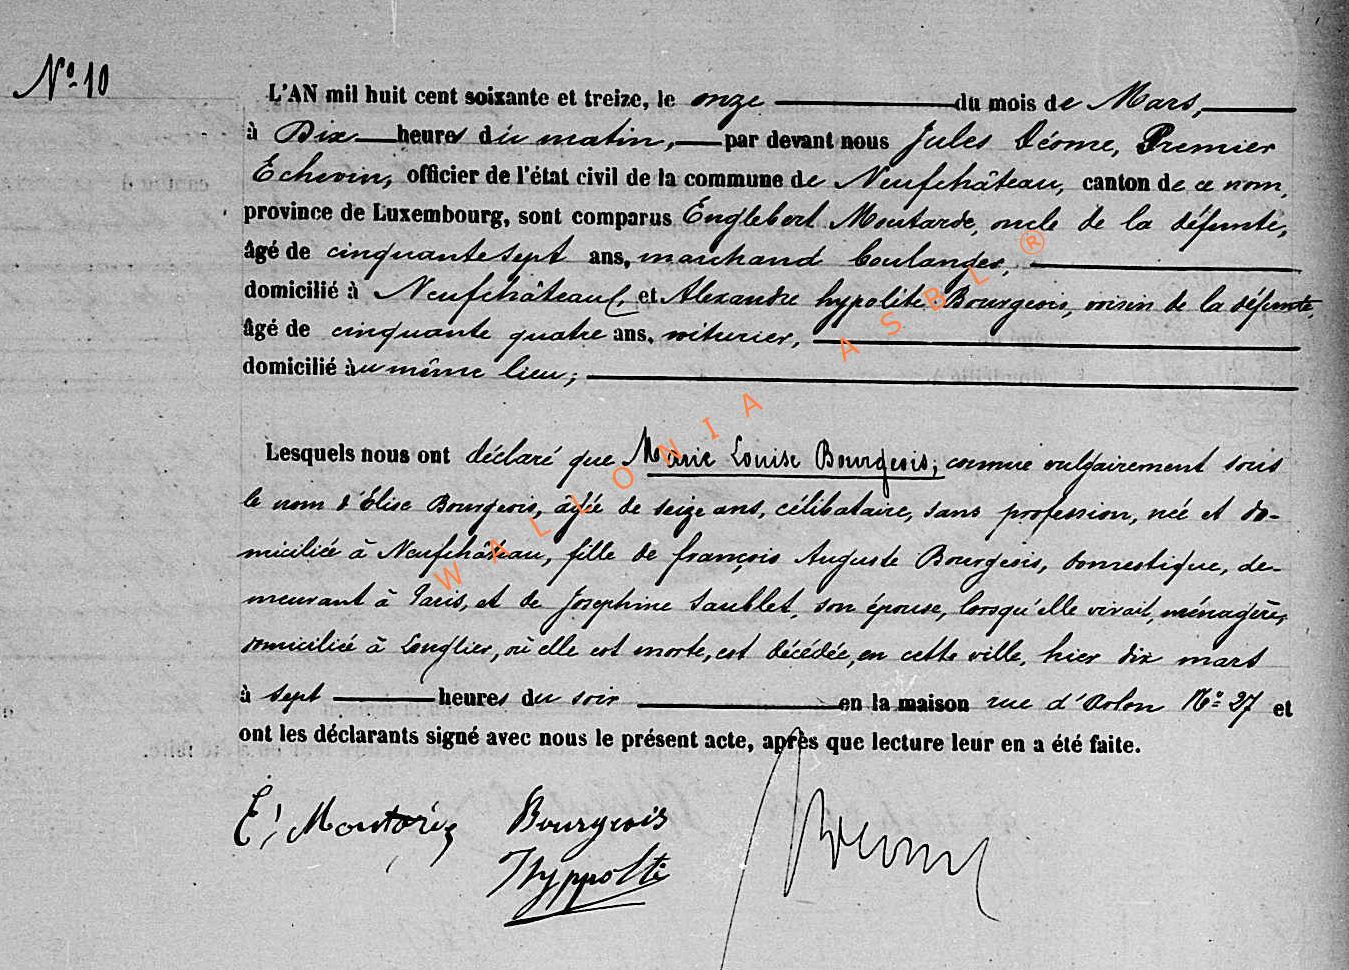 N° 10
L'AN mil huit cent soixante et treize, le onze du mois de Mars,
à Dix heures du matin, par devant nous Jules Déome, Premier
Echevin, officier de l'état civil de la commune de Neufchâteau, canton de ce nom,
province de Luxembourg, sont comparus Englebert Moutarde, oncle de la défunte,
âgé de cinquante sept ans, marchand boulanger,
domicilié à Neufchâteau, et Alexandre hypolite Bourgeois, voisin de la défunte,
âgé de cinquante quatre ans, voiturier,
domicilié au même lieu;
Lesquels nous ont déclaré que Marie Louise Bourgeois, connue vulgairement sous
le nom d'Elise Bourgeois, âgée de seize ans, célibataire, sans profession, née et do-
miciliée à Neufchâteau, fille de françois Auguste Bourgeois, domestique, de-
meurant à Paris, et de Josephine Saublet, son épouse, lorsqu'elle vivait, ménagère,
domiciliée à Longlier, où elle est morte, est décédée, en cette ville, hier dix mars
à sept heures du soir en la maison rue d'Arlon N° 27 et
ont les déclarants signé avec nous le présent acte, après que lecture leur en a été faite.
E. Bourgeois
Hyppolite
WALLONIA ASBL ®